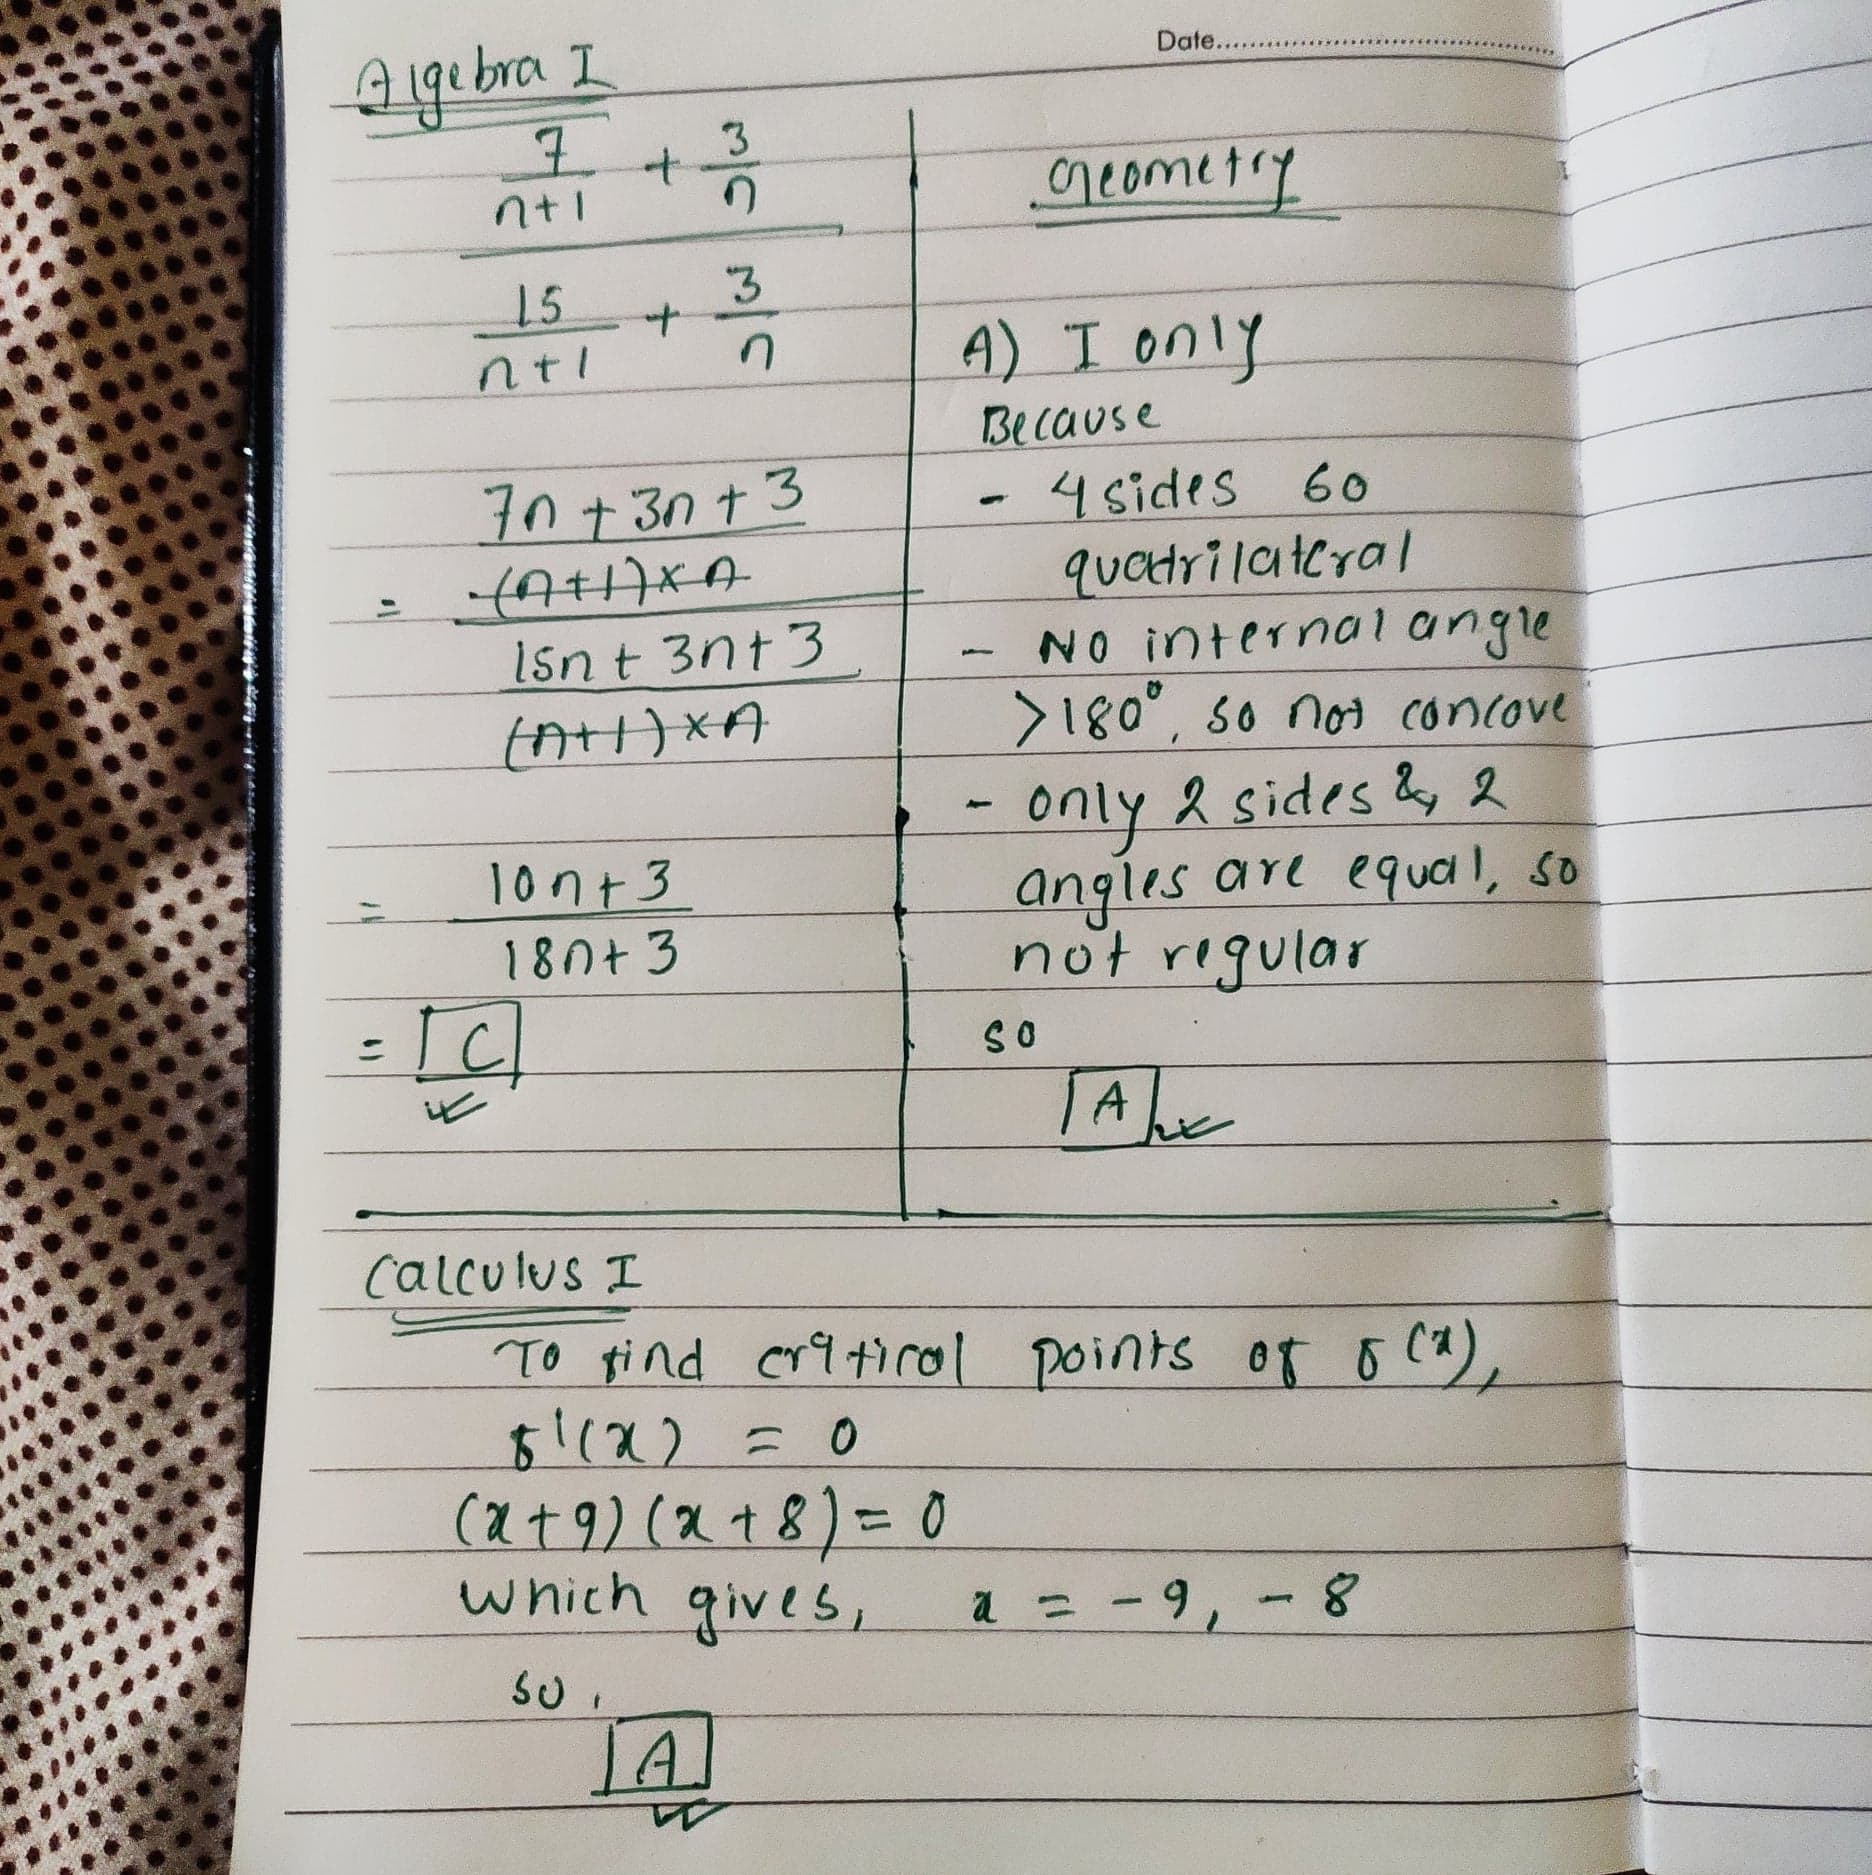 Date
Algebra I
7/(n+1) + 3/n
15/(n+1) + 3/n
7n + 3n + 3
= (n+1)×n
15n + 3n + 3
(n+1)×n
= 10n + 3
18n + 3
= C
Geometry
A) I only
Because
- 4 sides so
quadrilateral
- No internal angle
>180°, so not concave
- only 2 sides & 2
angles are equal, so
not regular
so
A
Calculus I
To find critical points of f(x),
f'(x) = 0
(x+9)(x+8) = 0
which gives, x = -9, -8
so,
A